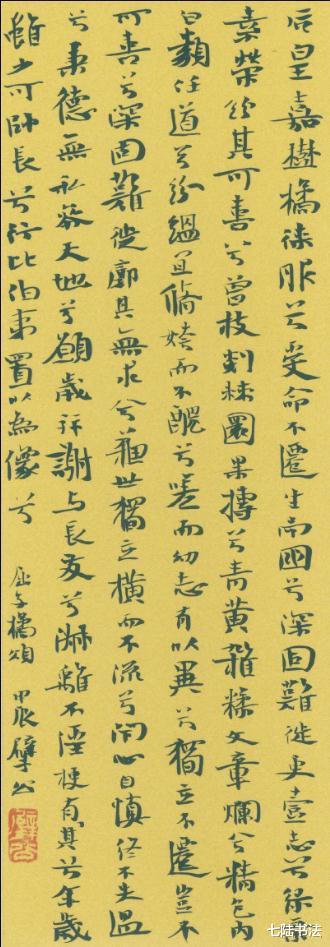 后皇嘉樹橘徠服兮受命不遷生南國兮深固難徙更壹志兮綠葉
素榮紛其可喜兮曾枝剡棘圜果摶兮青黃雜糅文章爛兮精色內
白類任道兮紛緼宜脩姱而不醜兮嗟而幼志有以異兮獨立不遷豈不
可喜兮深固難徙廓其無求兮蘇世獨立橫而不流兮閉心自慎終不失過
兮秉德無私參天地兮願歲并謝与長友兮淑離不淫梗有其兮年歲
雖少可師長兮行比伯夷置以為像兮 屈子橘頌 甲辰 擘公
七陆书法